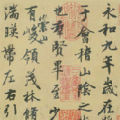 永和九年歲在
于會稽山陰之
也群賢畢至少
崇山
有峻領茂林脩
湍暎帶左右引